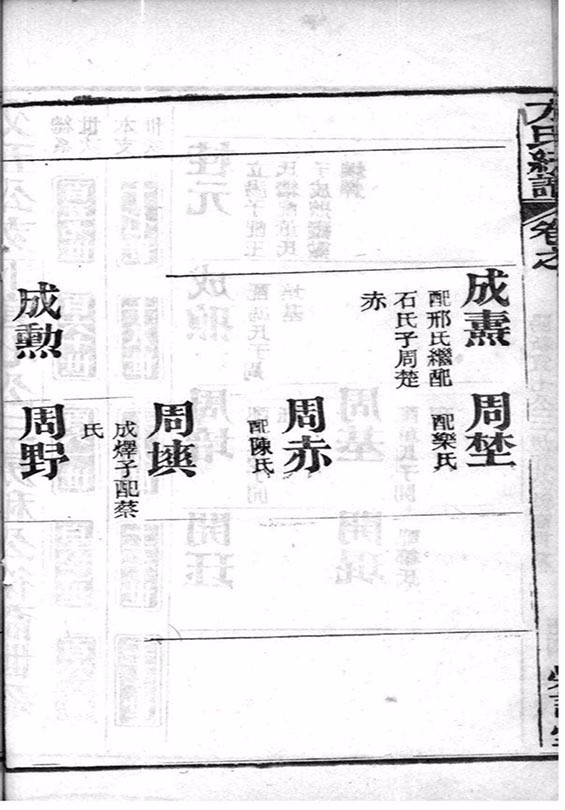 氏統譜 卷之
成
配邢氏繼配
石氏子周楚
赤
周埜
配欒氏
周赤
配陳氏
周塽
成燡子配蔡
氏
成勲
周野